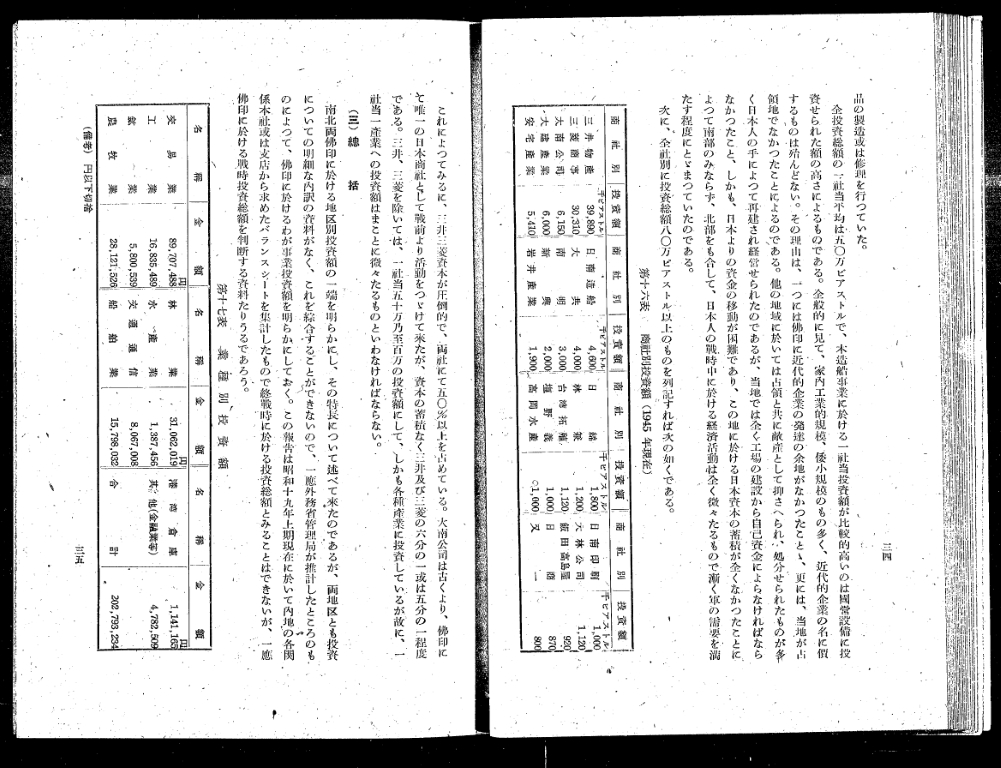 三四
品の製造或は修理を行つていた。
全投資総額の一社当平均は五〇万ピアストルで、木造船事業に於ける一社当投資額が比較的高いのは國営設備に投
資せられた額の高さによるものである。全般的に見て、家内工業的規模、倭小規模のもの多く、近代的企業の名に値
するものは殆んどない。その理由は、一つには佛印に近代的企業の発達の余地がなかつたこと、更には、当地が占
領地でなかつたことによるのである。他の地域に於いては占領と共に敵産として抑さへられ、処分せられたものが多
く日本人の手によつて再建され経営せられたのであるが、当地では全く工場の建設から自己資金によらなければなら
なかつたこと、しかも、日本よりの資金の移動が困難であり、この地に於ける日本資本の蓄積が全くなかつたことに
よつて南部のみならず、北部をも合して、日本人の戦時中に於ける経済活動は全く微々たるもので漸く軍の需要を満
たす程度にとどまつていたのである。
次に、全社別に投資総額八〇万ピアストル以上のものを列記すれば次の如くである。
第十六表 商社別投資額(1945年現在)
商社別 投資額 商社別 投資額 商社別 投資額 商社別 投資額
千ピアストル 千ピアストル 千ピアストル 千ピアストル
三井物産 39,890 日南造船 4,600 日 1,800 日南印刷 1,000
三菱商事 30,310 大 4,000 林 1,200 大林公司 1,120
大南公司 6,150 南明 3,000 台湾拓殖 1,120 飯田高島屋 920
大建産業 6,000 新興 2,000 塩野義 1,000 日商 870
安宅産業 5,410 岩井産業 1,900 高岡水産 1,000 又一 800
これによつてみるに、三井三菱資本が圧倒的で、両社にて五〇%以上を占めている。大南公司は古くより、佛印に
て唯一の日本商社として戦前より活動をつづけて来たが、資本の蓄積なく三井及び三菱の六分の一或は五分の一程度
である。三井、三菱を除いては、一社当五十万乃至百万の投資額にして、しかも各種産業に投資しているが故に、一
社当一産業への投資額はまことに微々たるものといわなければならない。
(三)総括
南北両佛印に於ける地区別投資額の一端を明らかにし、その特長について述べて来たのであるが、両地区とも投資
についての明細な内訳の資料がなく、これを綜合することができないので、一應外務省管理局が推計したところのも
のによつて、佛印に於けるわが事業投資額を明らかにしておく。この報告は昭和十九年上期現在に於いて内地の各関
係本社或は支店から求めたバランスシートを集計したもので終戦時に於ける投資総額とみることはできないが、一應
佛印に於ける戦時投資総額を判断する資料たりうるであろう。
第十七表 業種別投資額
名称 金額 名称 金額 名称 金額
円 円 円
交易業 89,707,488 林業 31,062,019 湾倉庫 1,141,165
工業 16,835,489 水産業 1,387,456 其他(金融業等) 4,782,509
鉱業 5,800,539 交通通信 8,067,008
農牧業 28,121,526 船舶業 15,798,032 合計 202,793,234
(備考) 円以下切捨
三五